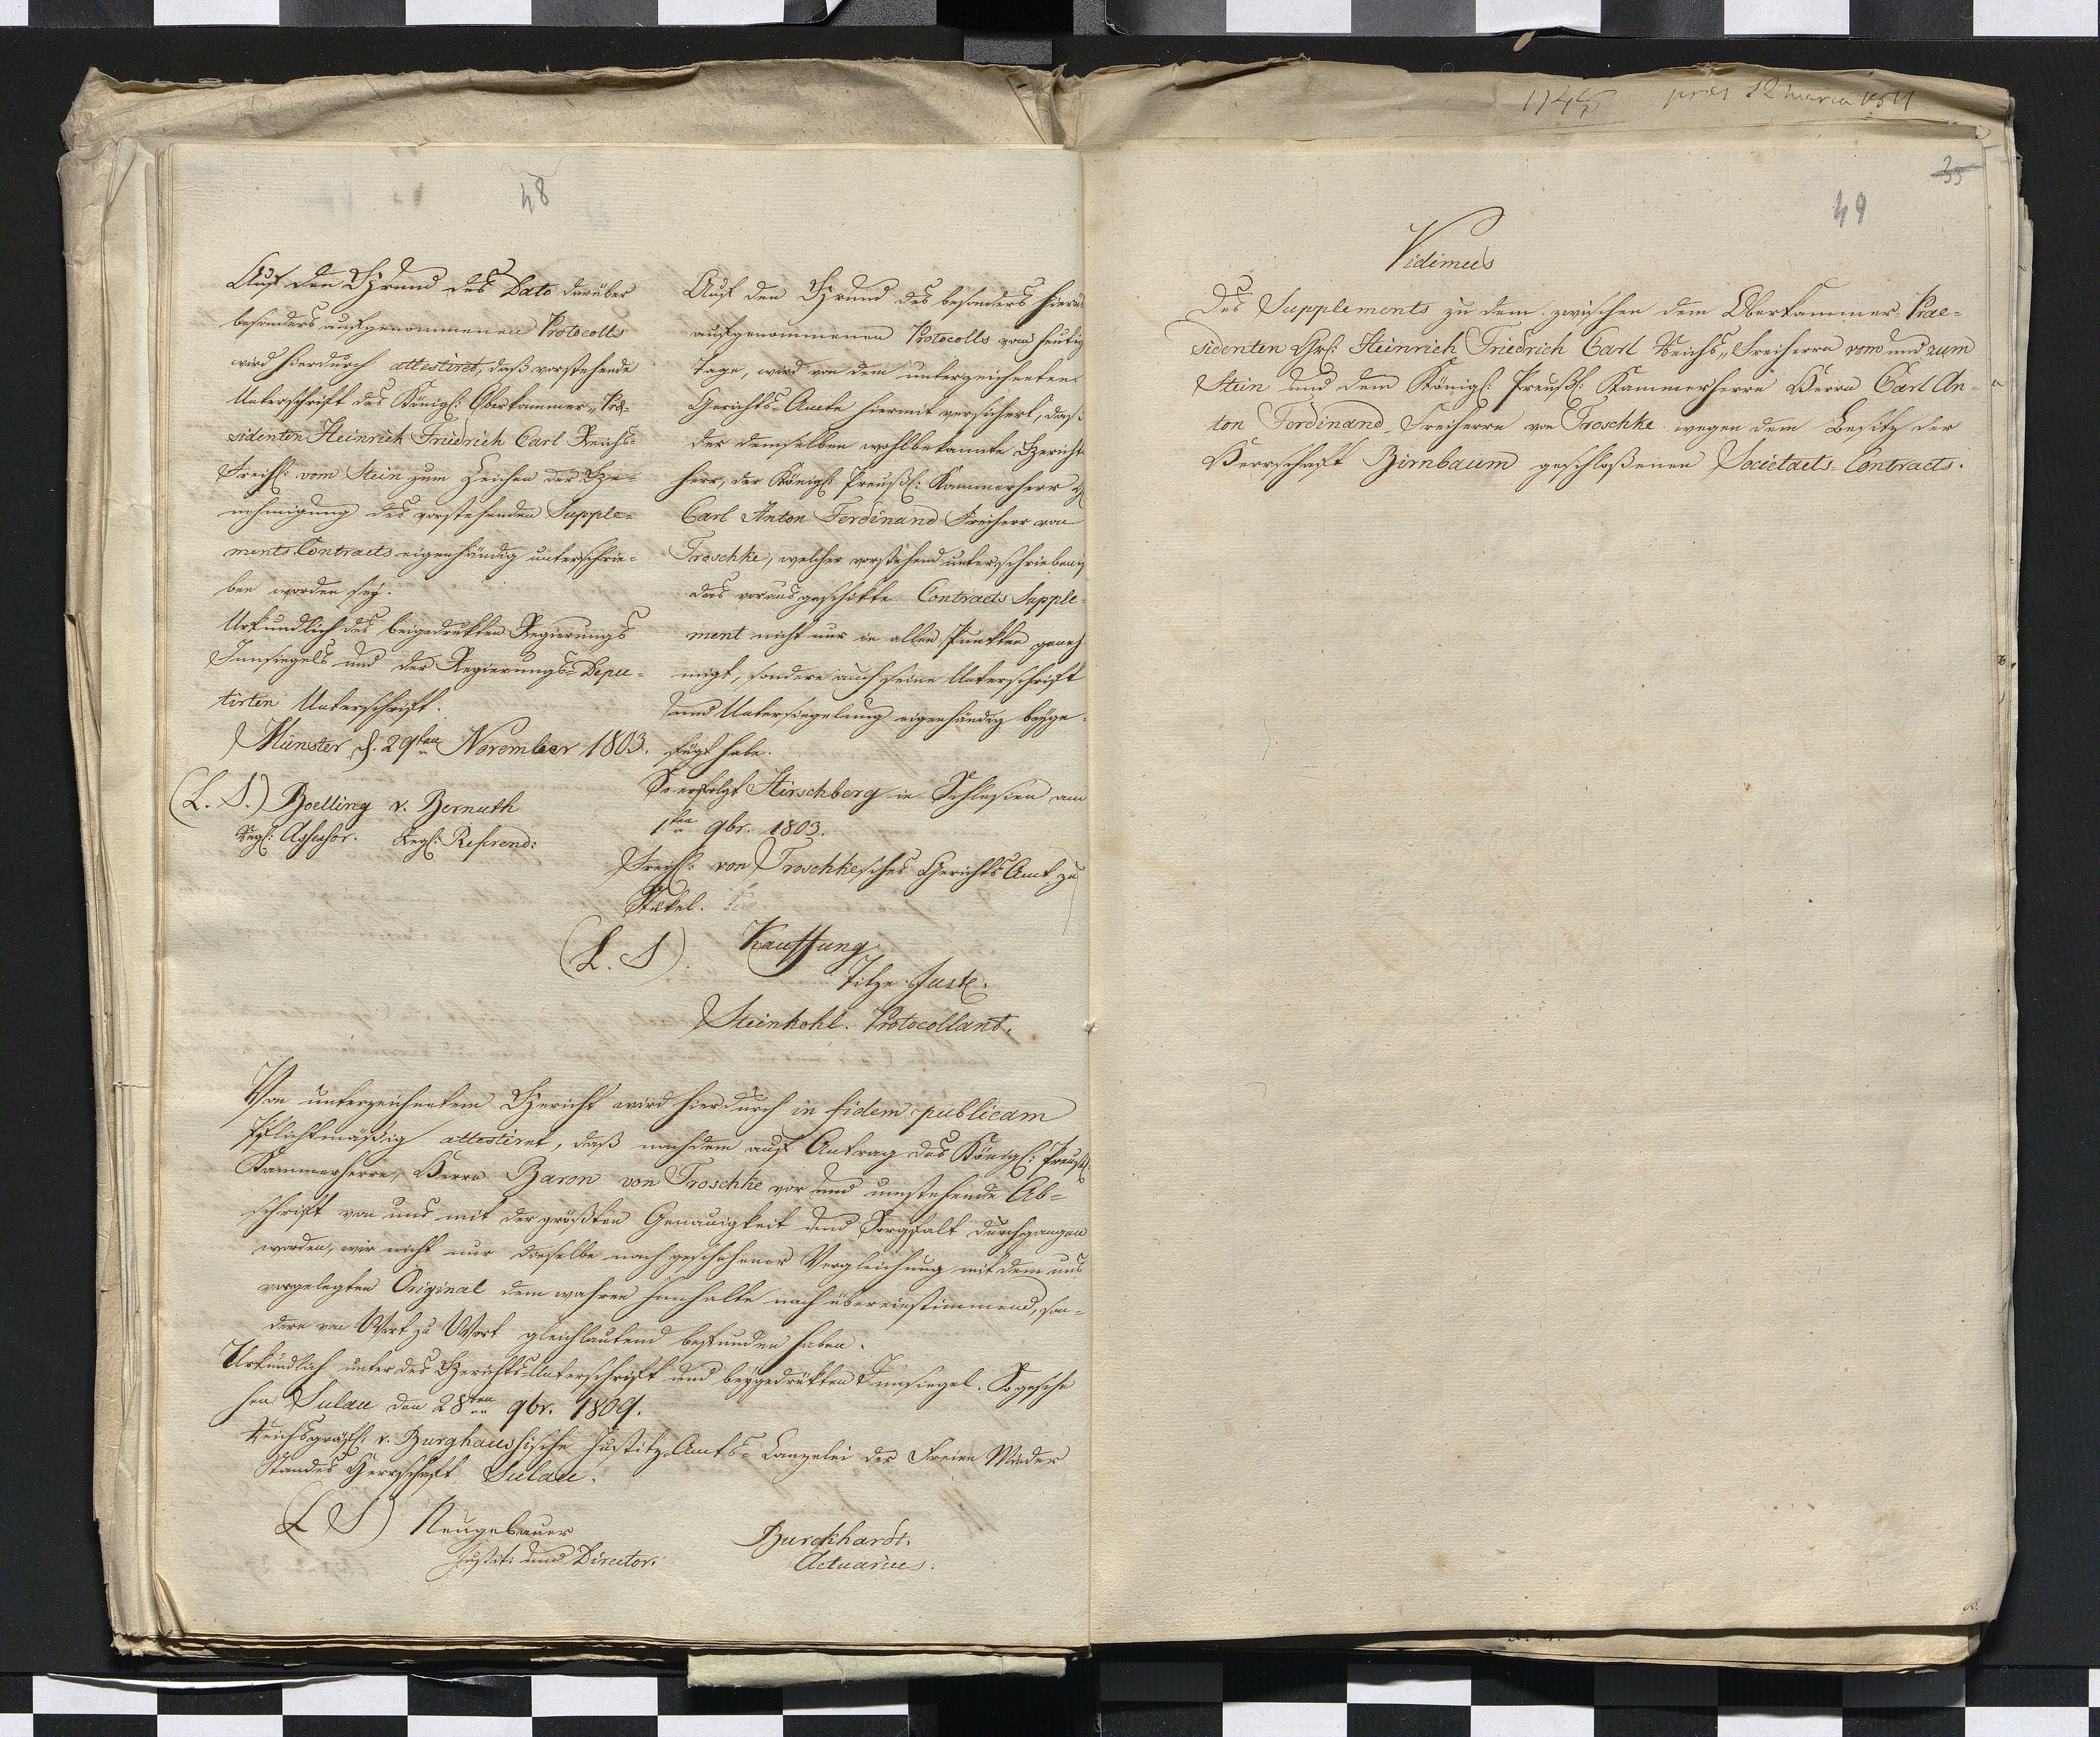 48
Auf den Grund des Dato darüber
besonders aufgenommenen Protocolls
wird hierdurch attestiret, daß vorstehende
Unterschrift des Königl: Oberkammer-Prä-
sidenten Heinrich Friedrich Carl Reichs-
Freih: vom Stein zum Zeichen der Ge-
nehmigung des vorstehenden Supple-
ments Contracts eigenhändig unterschrie-
ben worden sey.
Urkundlich des beigedrukten Regierungs
Innsiegels und der Regierungs-Depu-
tirten Unterschrift.
Münster d. 29ten November 1803.
(L. S.) Boelling v. Bernuth
Regl: Assessor. Regl: Refrend:
Auf den Grund des besonders
aufgenommenen Protocolls vom heutig
Tage, wird von dem unterzeichneten
Gerichts-Amte hiermit versichert, daß
der demselben wohlbekannte Gerichts
herr, der Königl: Preußl: Kammerherr H
Carl Anton Ferdinand Freiherr von
Troschke, welcher vorstehend unterschrieben,
das vorausgeschikte Contracts Supple-
ment nicht nur in allen Punkten geneh
migt, sondern auch seine Unterschrift
und Untersiegelung eigenhändig beyge-
fügt habe.
So erfolgt Hirschberg in Schlesien am
1ten 9br. 1803.
Freihl: von Troschkesches Gerichts Amt zu
(L. S.) Kauffung
Titze Just:
Steinkohl. Protocollant.
Von unterzeichnetem Gericht wird hierdurch in fidem publicam
Pflichtmäßig attestiret, daß nachdem auf Antrag des Königl: Preußl:
Kammerherrn, Herrn Baron von Troschke vor und umstehende Ab-
schrift von uns mit der größten Genauigkeit und Sorgfalt durchgangen
worden, wir nicht nur dieselbe nach geschehener Vergleichung mit dem uns
vorgelegten Original dem wahren Innhalte nach übereinstimmend, son-
dern von Wort zu Wort gleichlautend befunden haben.
Urkundlich unter des Gerichts-Unterschrift und beygedrükten Innsiegel. So gesche
hen Sulau den 28ten 9br. 1809.
Reichsgräfl: v. Burghaussische Justitz-Amts-Canzelei der Freien Minder
Standes Herrschaft Sulau.
(L S) Neugebauer
Justit: und Director.
Burckhardt.
Actuarius.
35
49
Vidimus
des Supplements zu dem zwischen dem Oberkammer-Prae-
sidenten Hrl: Heinrich Friedrich Carl Reichs-Freiherrn vom und zum
Stein und dem Königl: Preußl: Kammerherrn Herrn Carl An-
ton Ferdinand Freiherrn von Troschke wegen dem Besitz der
Herrschaft Birnbaum geschloßenen Societaets-Contracts.